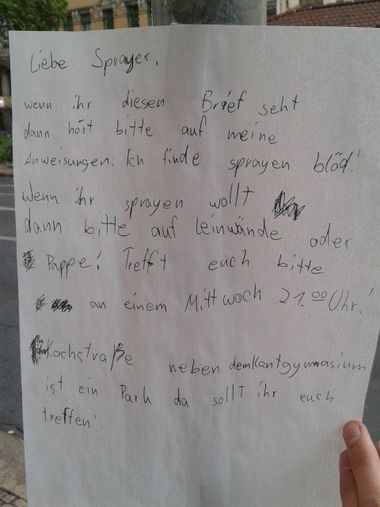 Liebe Sprayer,
wenn ihr diesen Brief seht
dann hört bitte auf meine
Anweisungen: Ich finde sprayen blöd!
wenn ihr sprayen wollt
dann bitte auf leinwände oder
Pappe! Trefft euch bitte
an einem Mittwoch 21.00 Uhr!
Kochstraße neben dem Kantgymnasium
ist ein Park da sollt ihr euch
treffen!